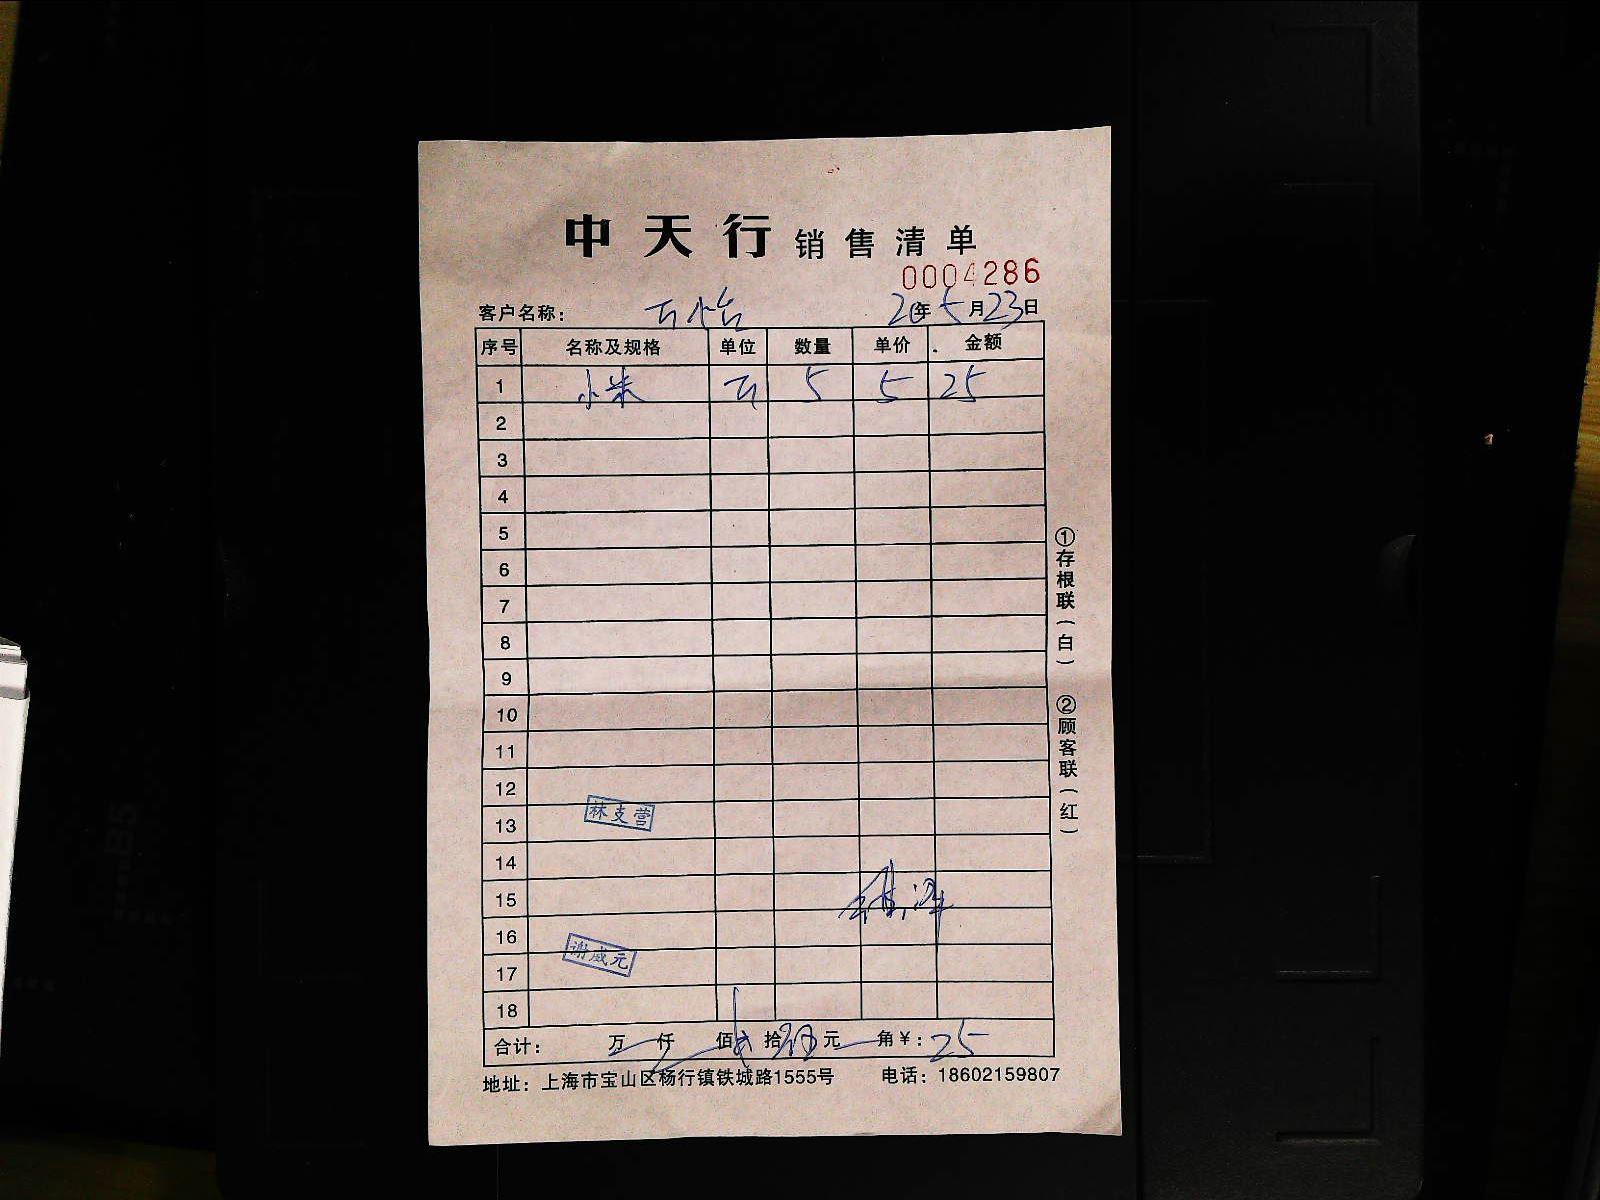 中天行 销售清单
0004286
客户名称： 20年5月23日
序号 名称及规格 单位 数量 单价 金额
1 小米 斤 5 5 25
2
3
4
5
6
7
8
9
10
11
12
13 林支营
14
15
16
17 谢威元
18
合计： 万 仟 佰 拾 元 角￥：25
地址：上海市宝山区杨行镇铁城路1555号 电话：18602159807
①存根联（白） ②顾客联（红）